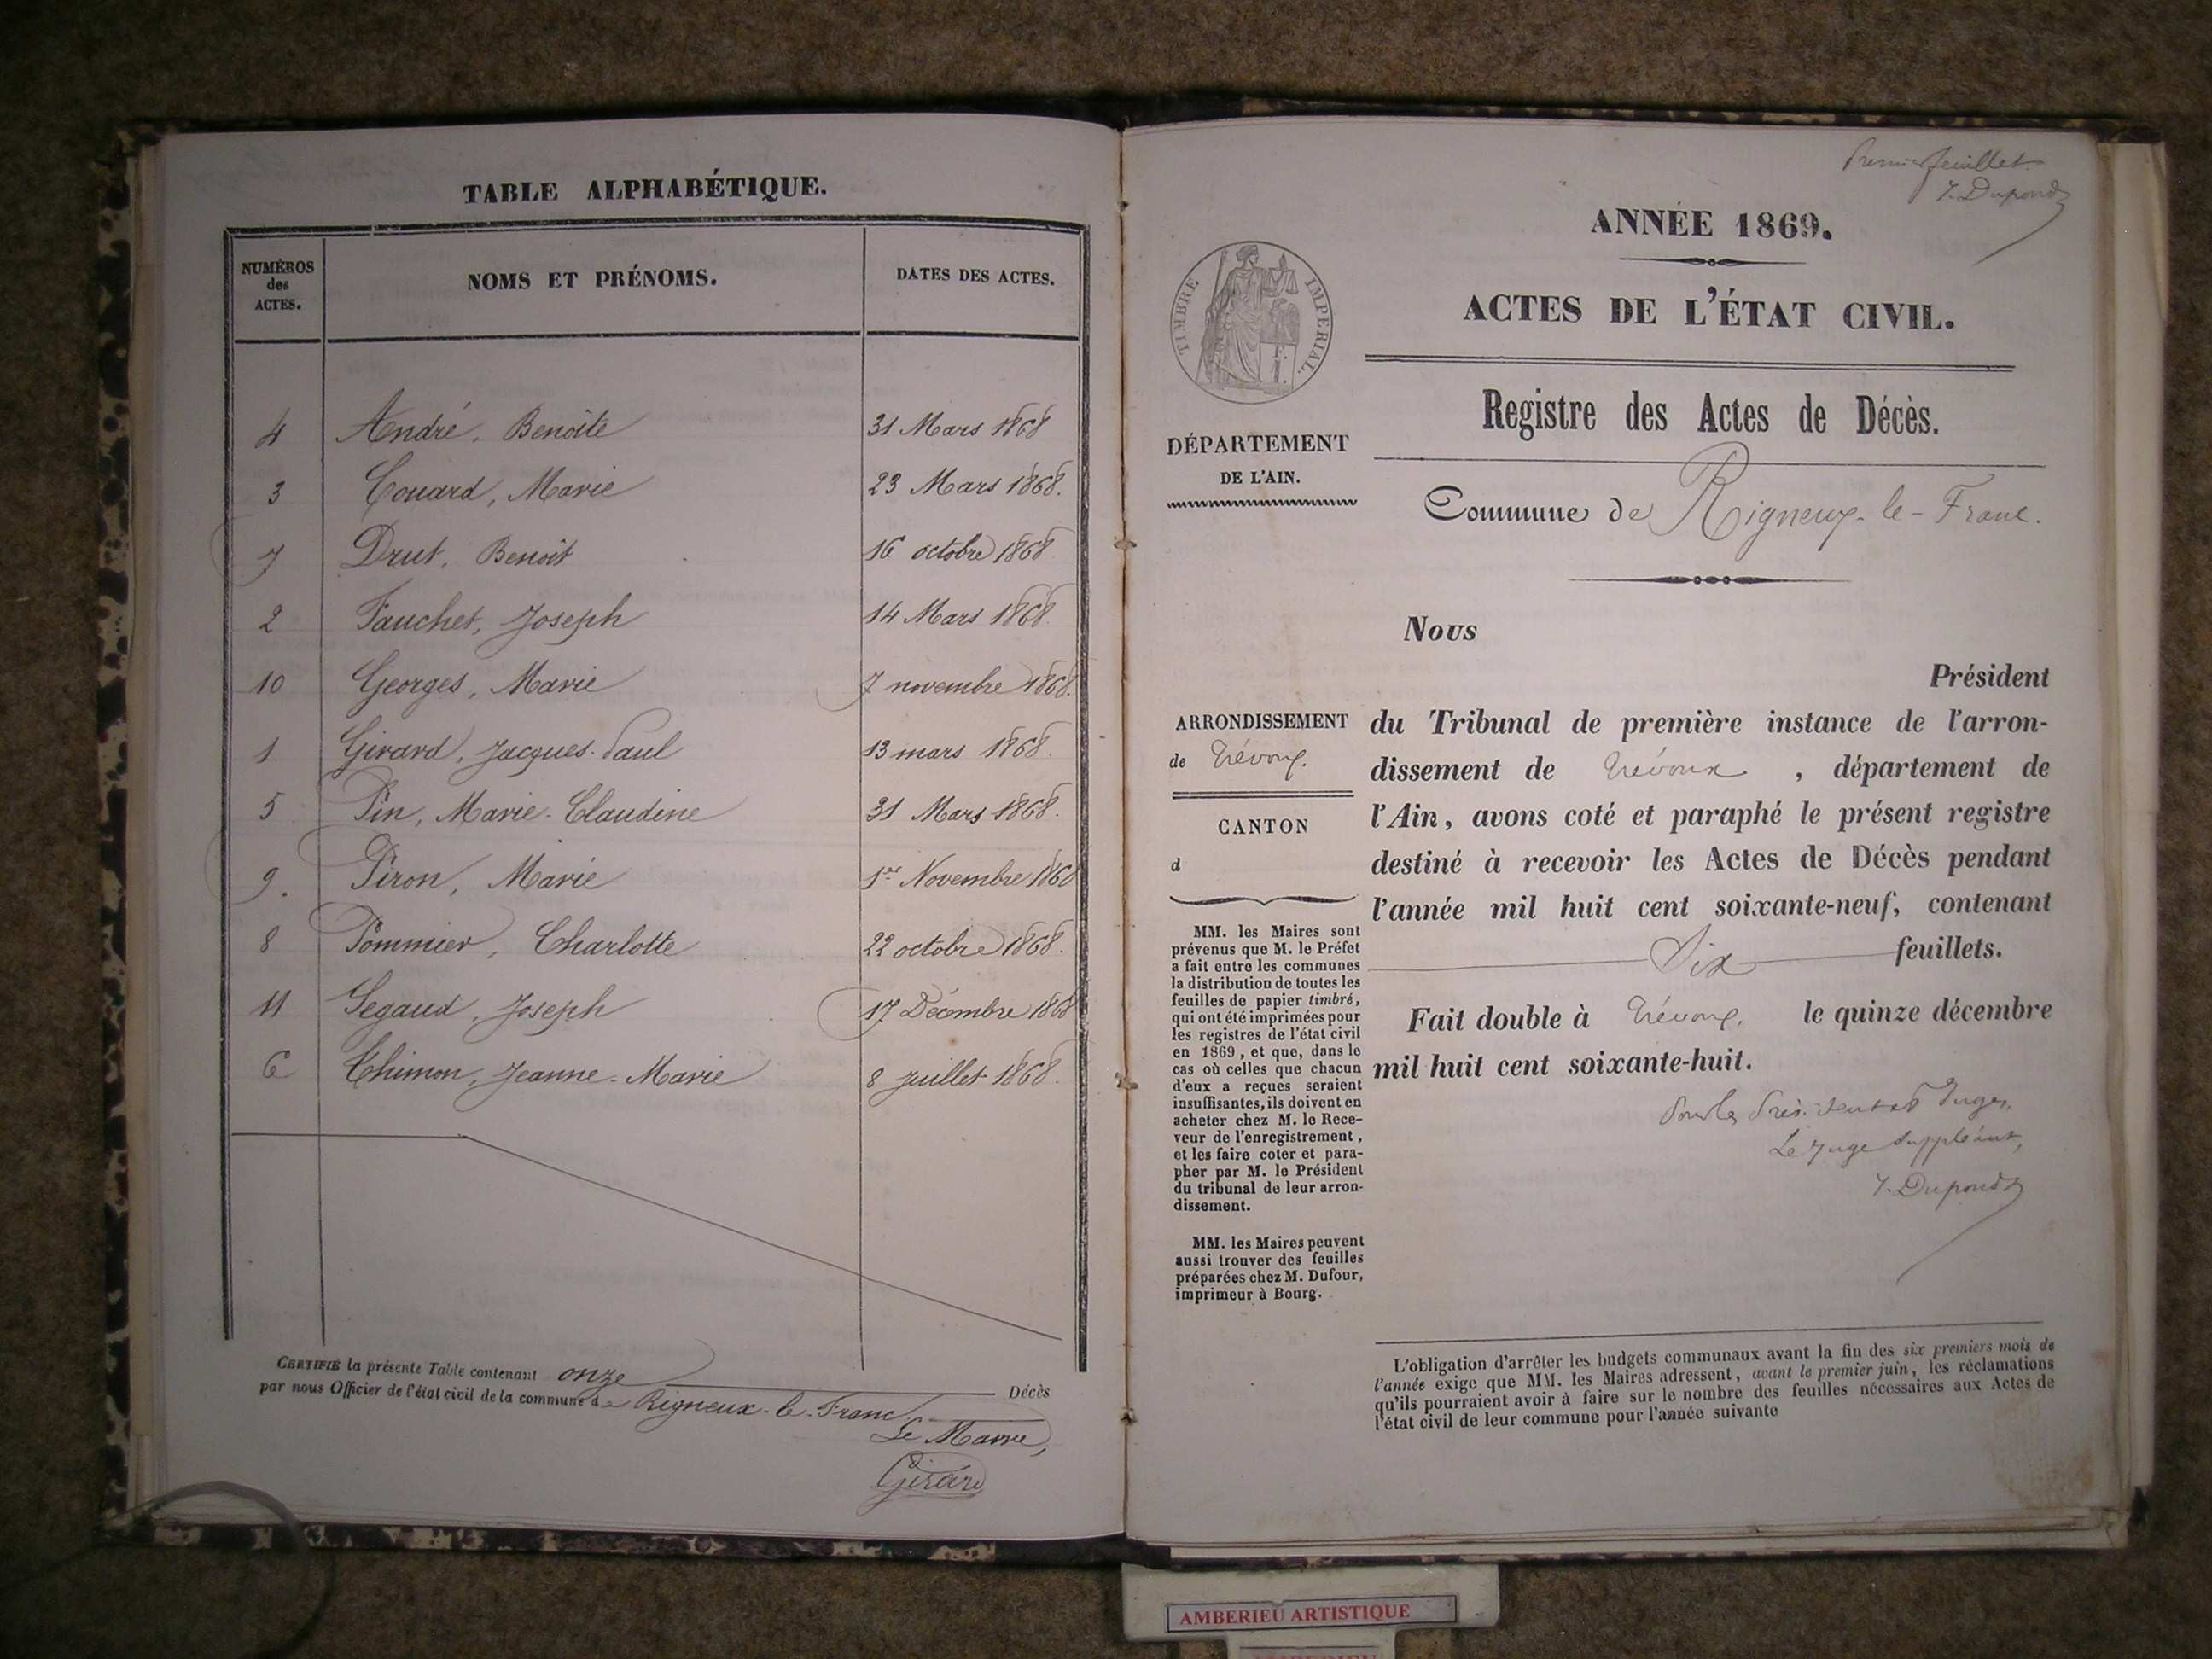 TABLE ALPHABÉTIQUE.
NUMÉROS des ACTES.
NOMS ET PRÉNOMS.
DATES DES ACTES.
4 André, Benoite 31 Mars 1868
3 Couard, Marie 23 Mars 1868.
7 Drut, Benoit 16 octobre 1868
2 Fauchet, Joseph 14 Mars 1868.
10 Georges, Marie 7 novembre 1868.
1 Girard, Jacques-Paul 13 mars 1868.
5 Pin, Marie-Claudine 31 Mars 1868.
9. Piron, Marie 1er Novembre 1868
8 Pommier, Charlotte 22 octobre 1868.
11 Segaud, Joseph 17 Décembre 1868
6 Thimon, Jeanne-Marie 8 juillet 1868.
CERTIFIÉ la présente Table contenant onze Décès
par nous Officier de l'état civil de la commune de Rigneux-le-Franc.
Le Maire,
Girard
Premier feuillet
J. Dupond
ANNÉE 1869.
TIMBRE IMPERIAL.
ACTES DE L'ÉTAT CIVIL.
Registre des Actes de Décès.
DÉPARTEMENT
DE L'AIN.
Commune de Rigneux-le-Franc.
Nous
Président
ARRONDISSEMENT
de Trévoux.
CANTON
d
du Tribunal de première instance de l'arron-
dissement de Trévoux , département de
l'Ain, avons coté et paraphé le présent registre
destiné à recevoir les Actes de Décès pendant
l'année mil huit cent soixante-neuf, contenant
Six feuillets.
Fait double à Trévoux, le quinze décembre
mil huit cent soixante-huit.
Le Juge Suppléant,
J. Dupond
MM. les Maires sont
prévenus que M. le Préfet
a fait entre les communes
la distribution de toutes les
feuilles de papier timbré,
qui ont été imprimées pour
les registres de l'état civil
en 1869, et que, dans le
cas où celles que chacun
d'eux a reçues seraient
insuffisantes, ils doivent en
acheter chez M. le Rece-
veur de l'enregistrement,
et les faire coter et para-
pher par M. le Président
du tribunal de leur arron-
dissement.
MM. les Maires peuvent
aussi trouver des feuilles
préparées chez M. Dufour,
imprimeur à Bourg.
L'obligation d'arrêter les budgets communaux avant la fin des six premiers mois de
l'année exige que MM. les Maires adressent, avant le premier juin, les réclamations
qu'ils pourraient avoir à faire sur le nombre des feuilles nécessaires aux Actes de
l'état civil de leur commune pour l'année suivante
AMBERIEU ARTISTIQUE
AMBERIEU